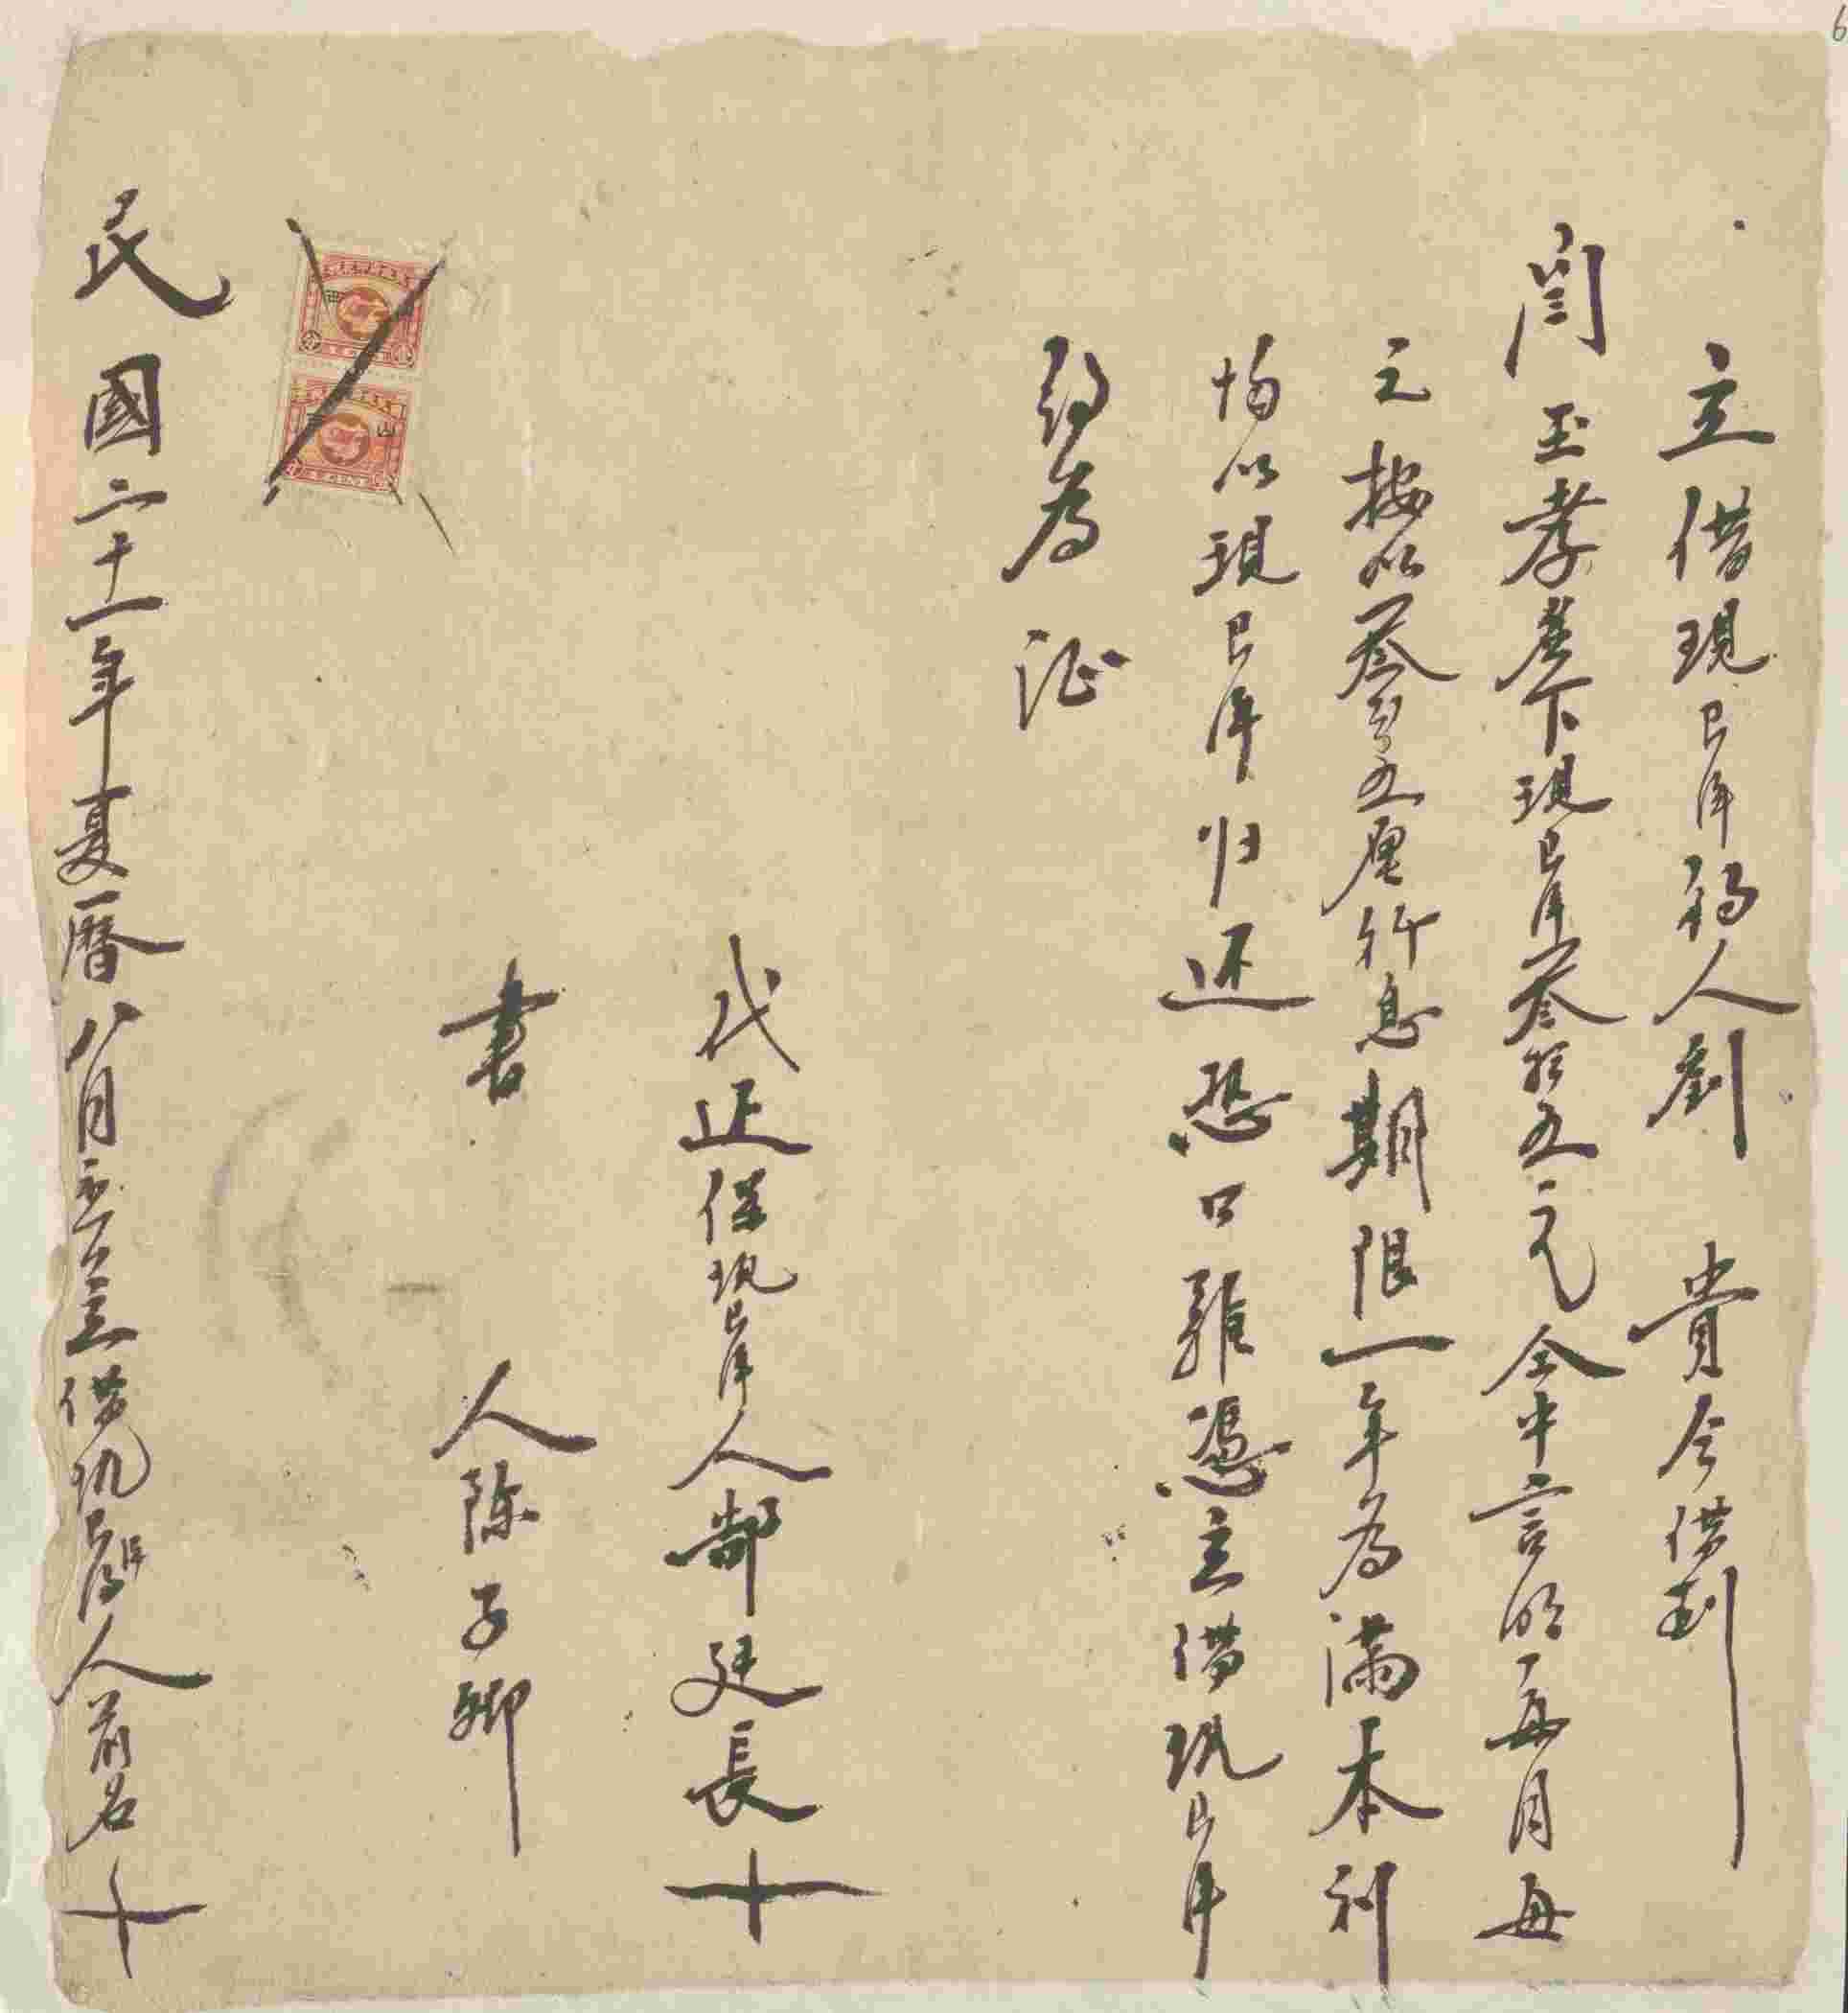 立借現洋約人劉 貴今借到
閆玉孝名下現洋叁拾五元仝中言明每月每
元按以叁分五厘行息期限一年為滿本利
均以現洋归还恐口难憑立借現洋
約為证
代正保現洋人郝廷長十
書 人陈子卿
民國二十一年夏暦八月 立借現洋約人前名十
6